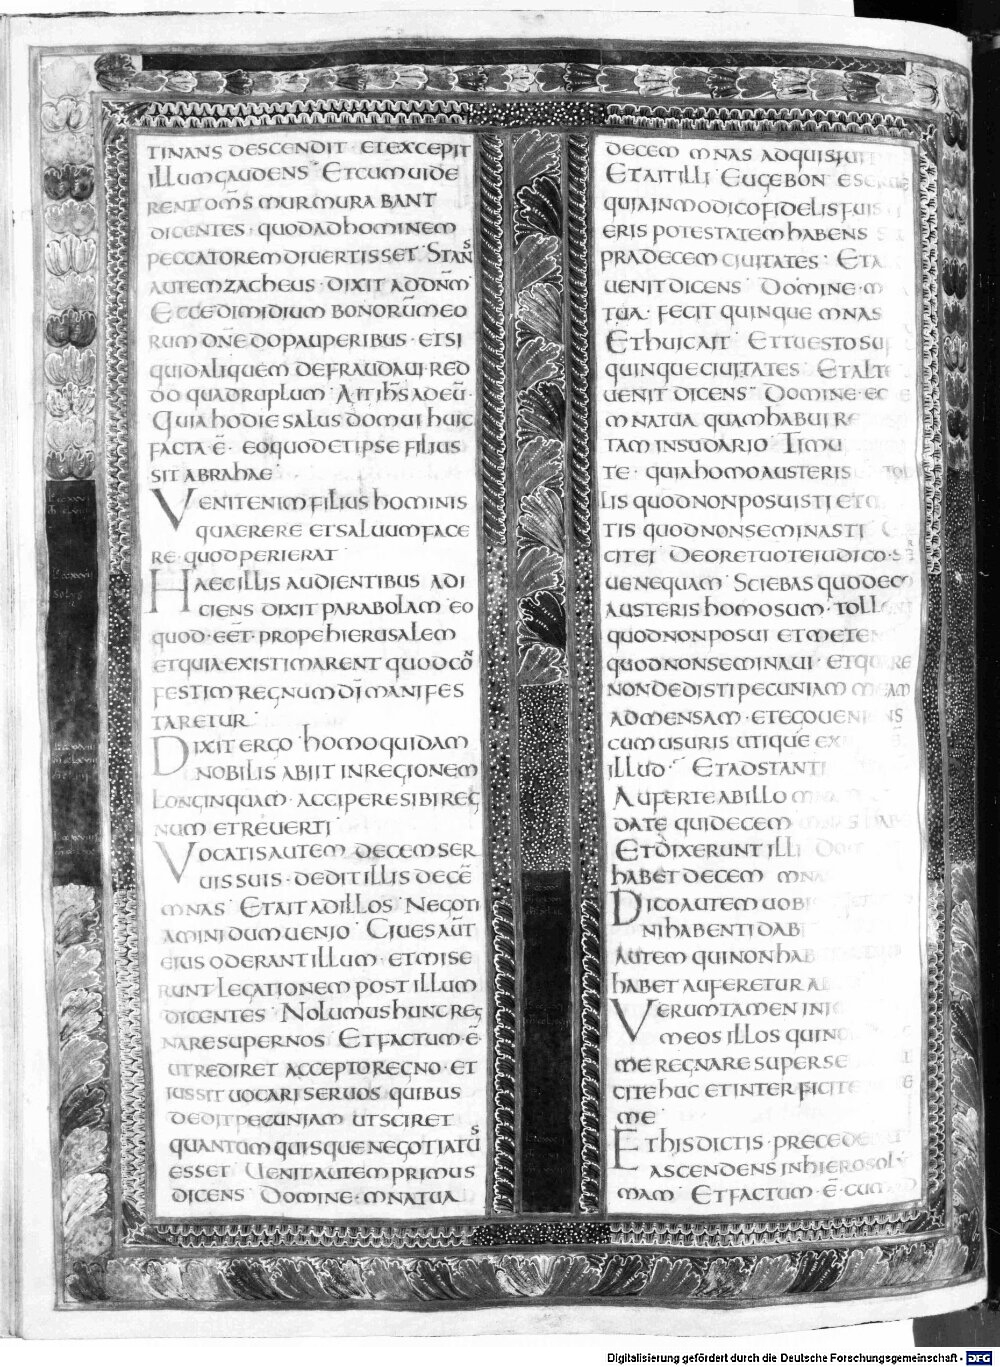 TINANS DESCENDIT · ET EXCEPIT
ILLUM GAUDENS · ET CUM UIDE
RENT OMS MURMURABANT
DICENTES · QUOD AD HOMINEM
PECCATOREM DIVERTISSET · STANS
AUTEM ZACHEUS · DIXIT AD DNM
ECCE DIMIDIUM BONORUM MEO
RUM DNE DO PAUPERIBUS · ET SI
QUID ALIQUEM DEFRAUDAUI · RED
DO QUADRUPLUM · AIT IHS AD EŪ ·
QUIA HODIE SALUS DOMUI HUIC
FACTA Ē · EO QUOD ET IPSE FILIUS
SIT ABRAHAE ·
VENIT ENIM FILIUS HOMINIS
QUAERERE ET SALUUM FACE
RE · QUOD PERIERAT ·
HAEC ILLIS AUDIENTIBUS ADI
CIENS DIXIT PARABOLAM · EO
QUOD · EĒT · PROPE HIERUSALEM
ET QUIA EXISTIMARENT QUOD CŌ
FESTIM REGNUM DI MANIFES
TARETUR ·
DIXIT ERGO · HOMO QUIDAM
NOBILIS ABIIT IN REGIONEM
LONGINQUAM · ACCIPERE SIBI REG
NUM ET REUERTI ·
VOCATIS AUTEM DECEM SER
UIS SUIS · DEDIT ILLIS DECĒ
MNAS · ET AIT AD ILLOS · NEGOTI
AMINI DUM UENIO · CIUES AUT
EIUS ODERANT ILLUM · ET MISE
RUNT LEGATIONEM POST ILLUM
DICENTES · NOLUMUS HUNC REG
NARE SUPER NOS · ET FACTUM Ē ·
UT REDIRET ACCEPTO REGNO · ET
IUSSIT UOCARI SERUOS QUIBUS
DEDIT PECUNIAM UT SCIRET
QUANTUM QUISQUE NEGOTIATUS
ESSET · UENIT AUTEM PRIMUS
DICENS · DOMINE · MNA TUA
DECEM MNAS ADQUISIUIT
ET AIT ILLI · EUGE BONE
QUIA IN MODICO FIDELIS
ERIS POTESTATEM HABENS
PRA DECEM CIUITATES · ET
UENIT DICENS · DOMINE ·
TUA · FECIT QUINQUE MNAS
ET HUIC AIT · ET TU ESTO
QUINQUE CIUITATES · ET
UENIT DICENS · DOMINE ·
MNA TUA QUAM HABUI
TAM IN SUDARIO · TIMU
TE · QUIA HOMO AUSTERIS
LIS QUOD NON POSUISTI ET
TIS QUOD NON SEMINASTI
CIT EI · DE ORE TUO TE IUDICO · S
UE NEQUAM · SCIEBAS QUOD EGO
AUSTERIS HOMO SUM · TOLL
QUOD NON POSUI ET METE
QUOD NON SEMINAUI · ET QUARE
NON DEDISTI PECUNIAM MEAM
AD MENSAM · ET EGO UENIENS
CUM USURIS UTIQUE EX
ILLUD · ET ADSTANTI
AUFERTE AB ILLO
DATE QUI DECEM
ET DIXERUNT ILLI
HABET DECEM MNAS
DICO AUTEM UOBIS
NI HABENTI DABI
AUTEM QUI NON HAB
HABET AUFERETUR AB
VERUMTAMEN INI
MEOS ILLOS QUI
ME REGNARE SUPER SE
CITE HUC ET INTERFICITE
ME ·
ET HIS DICTIS · PRECEDE
ASCENDENS IN HIEROSOLY
MAM · ET FACTUM · Ē · CUM
Digitalisierung gefördert durch die Deutsche Forschungsgemeinschaft - DFG